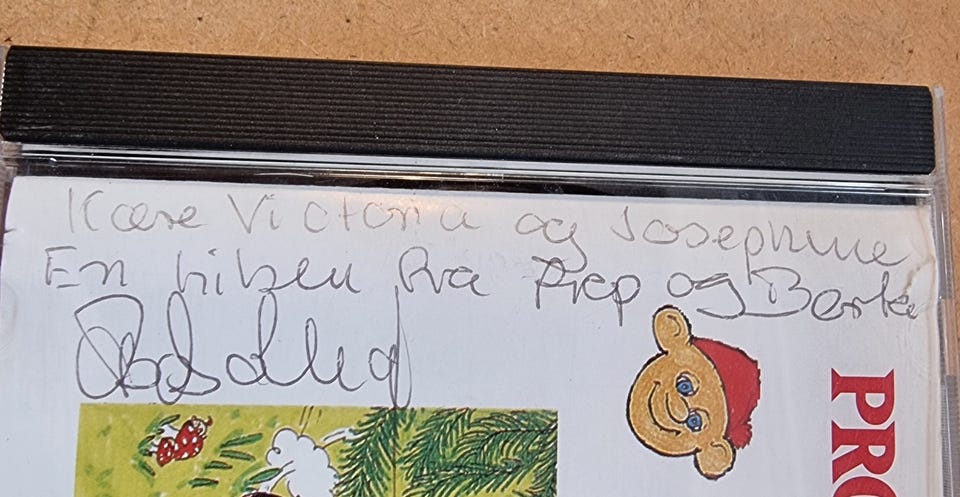 Kære Victoria og Josephine
En hilsen fra Prop og Berta
PRO